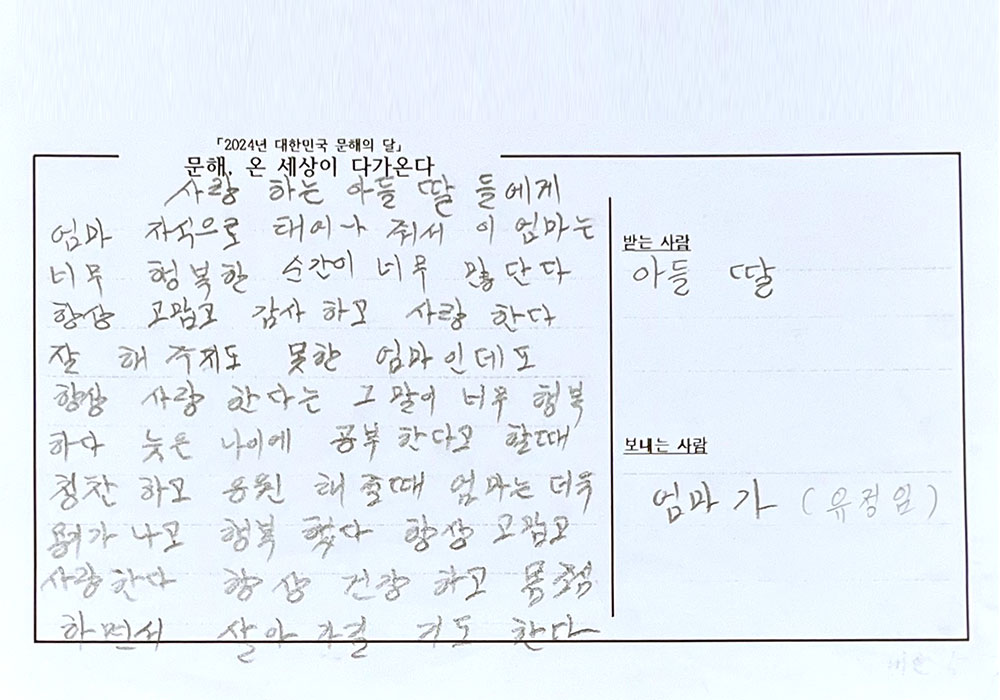 「2024년 대한민국 문해의 달」
문해, 온 세상이 다가온다
사랑 하는 아들 딸 들에게
엄마 자식으로 태어나 줘서 이 엄마는
너무 행복한 순간이 너무 많단다
항상 고맙고 감사 하고 사랑 한다
잘 해 주지도 못한 엄마인데도
항상 사랑 한다는 그 말이 너무 행복
하다 늦은 나이에 공부 한다고 할때
칭찬 하고 응원 해 줄때 엄마는 더욱
나고 행복 했다 항상 고맙고
사랑한다 항상 건강 하고
하면서 살아 한다
받는 사람
아들 딸
보내는 사람
엄마가 (유정임)